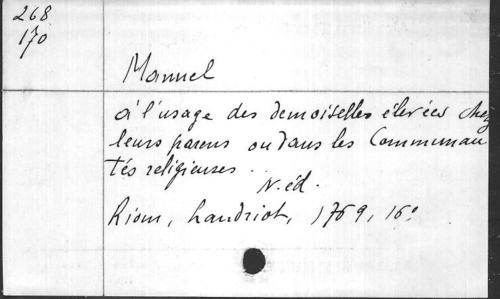 268
170
Manuel
à l'usage des demoiselles élevées chez
leurs parens ou dans les Communau
tés religieuses..
N. éd.
Riom, Landriot, 1769, 16º